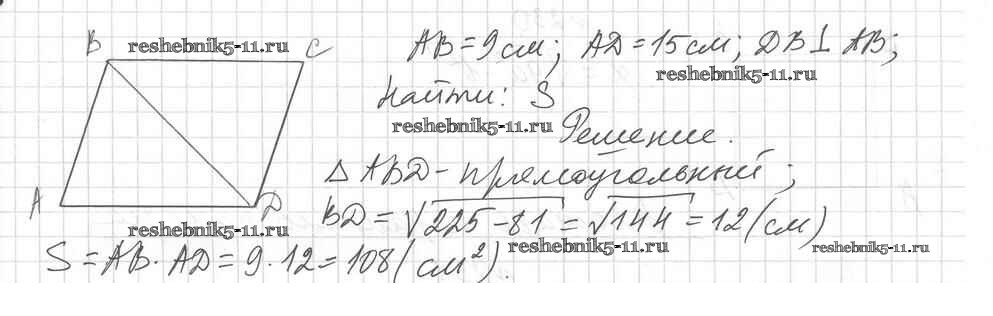 B reshebnik5-11.ru C
AB = 9 см; AD = 15 см; DB ⊥ AB;
reshebnik5-11.ru
Найти: S
reshebnik5-11.ru
Решение.
△ ABD - прямоугольный;
A D
BD = √225-81 = √144 = 12 (см)
reshebnik5-11.ru
reshebnik5-11.ru
reshebnik5-11.ru
S = AB · AD = 9 · 12 = 108 (см²).